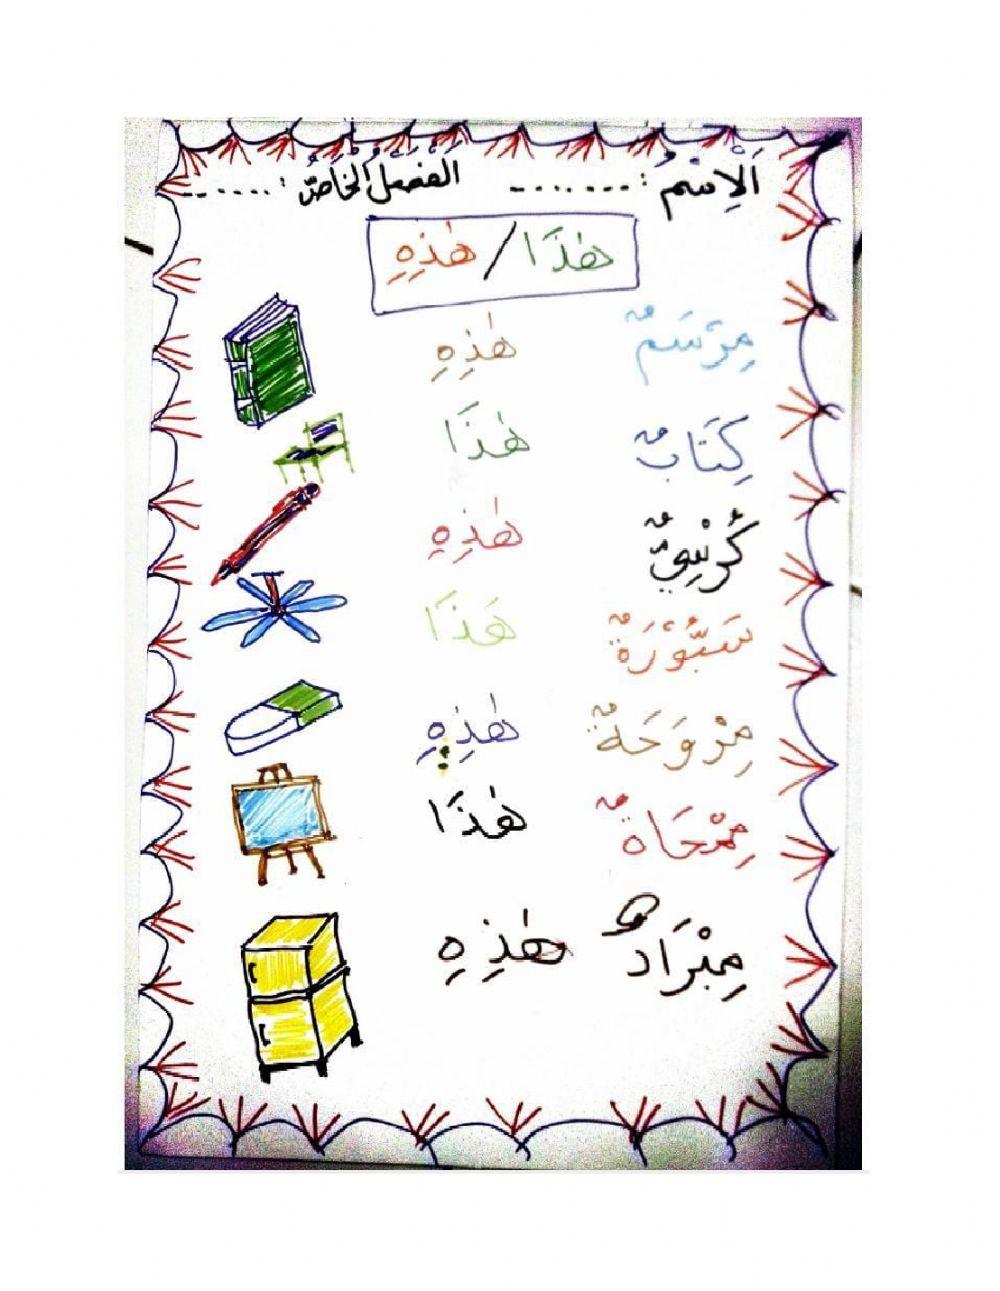 اَلْاِسْمُ : ........ اَلْفَصْلُ الْخَاصُّ : .......
هٰذَا / هٰذِهِ
مِرْسَمٌ هٰذِهِ
كِتَابٌ هٰذَا
كُرْسِيٌّ هٰذِهِ
سَبُّوْرَةٌ هَذَا
مِرْوَحَةٌ هٰذِهِ
مِمْحَاةٌ هٰذَا
مِبْرَادٌ هٰذِهِ